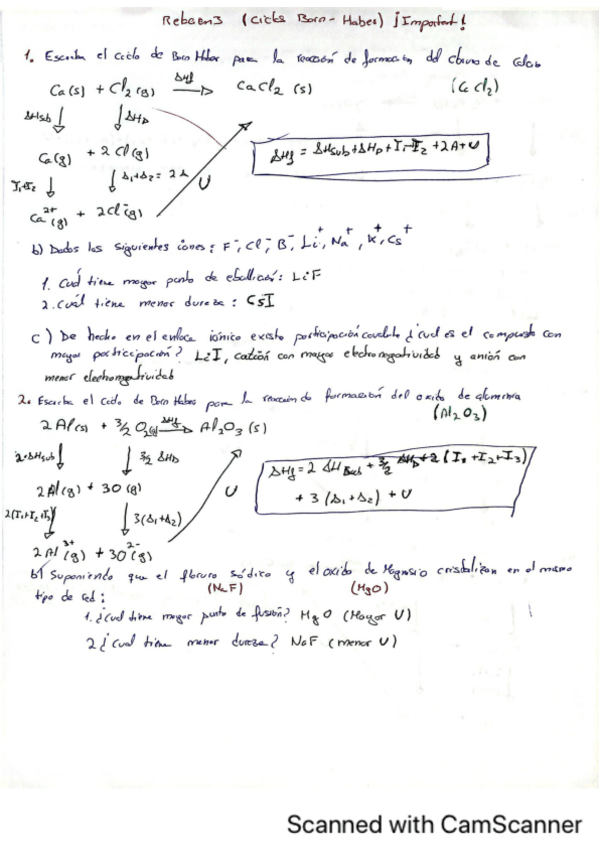 (Ciclos Born-Haber) ¡Important!
1. Escriba el ciclo de Born Haber para la reacción de formación del cloruro de Calcio
Ca(s) + Cl2(g) ΔHf → CaCl2(s) (CaCl2)
ΔHsub ↓ ↓ ΔHD
Ca(g) + 2Cl(g) ΔHf = ΔHsub + ΔHD + I1+I2 + 2A + U
I1+I2 ↓ ↓ U
Ca2+(g) + 2Cl-(g)
b) Dados los siguientes iones: F-, Cl-, Li+, Na+, K+, Cs+
1. Cuál tiene mayor punto de ebullición: LiF
2. Cuál tiene menor dureza: CsI
c) De hecho en el enlace iónico existe participación covalente ¿cuál es el compuesto con
mayor participación? LiI, catión con mayor electronegatividad y anión con
menor electronegatividad
2. Escriba el ciclo de Born Haber para la formación del oxido de aluminio
(Al2O3)
2Al(s) + 3/2 O2(g) ΔHf → Al2O3(s)
2·ΔHsub ↓ ↓ 3/2 ΔHD
2Al(g) + 3O(g) U
ΔHf = 2 ΔHsub + 3/2 ΔHD + 2(I1+I2+I3)
+ 3(Δ1+Δ2) + U
2(I1+I2+I3) ↓ ↓ 3(Δ1+Δ2)
2Al3+(g) + 3O2-(g)
b) Suponiendo que el floruro sódico y el oxido de Magnesio cristalizan en el mismo
(NaF) (MgO)
tipo de red:
1. ¿cual tiene mayor punto de fusión? MgO (Mayor U)
2 ¿cual tiene menor dureza? NaF (menor U)
Scanned with CamScanner